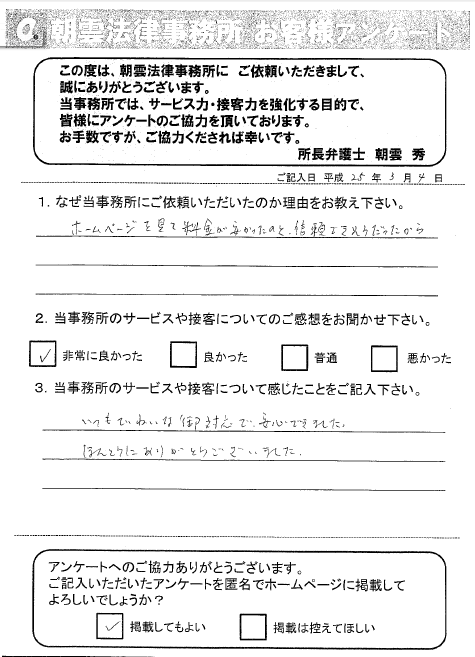 朝雲法律事務所 お客様アンケート
この度は、朝雲法律事務所に ご依頼いただきまして、
誠にありがとうございます。
当事務所では、サービス力・接客力を強化する目的で、
皆様にアンケートのご協力を頂いております。
お手数ですが、ご協力くだされば幸いです。
所長弁護士 朝雲 秀
ご記入日 平成 25 年 3 月 4 日
1．なぜ当事務所にご依頼いただいたのか理由をお教え下さい。
ホームページを見て料金が安かったのと、信頼できそうだったから
2．当事務所のサービスや接客についてのご感想をお聞かせ下さい。
✓ 非常に良かった 良かった 普通 悪かった
3．当事務所のサービスや接客について感じたことをご記入下さい。
いつもていねいな御対応で、安心できました。
ほんとうにありがとうございました。
アンケートへのご協力ありがとうございます。
ご記入いただいたアンケートを匿名でホームページに掲載して
よろしいでしょうか？
✓ 掲載してもよい 掲載は控えてほしい